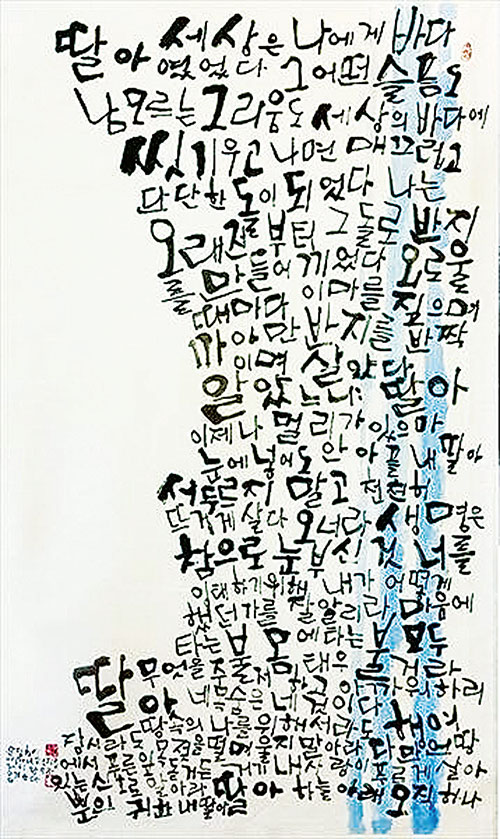 딸아 세상은 나에게 바다
였었다 그 어떤 슬픔도
남모르는 그리움도 세상의 바다에
씻기우고 나면 매끄럽고
단단한 돌이 되었다 나는
오래전부터 그 돌로 반지
를 만들어 끼었다 외로울
때마다 이마를 짚으며
까만 반지를 반짝
이며 살았다
알았느냐 딸아
이제 나 멀리 가 있으마
눈에 넣어도 안 아플 내 딸아
서두르지 말고 천천히
뜨겁게 살다 오너라 생명은
참으로 눈부신 것 너를
잉태하기 위해 내가 어떻게
했던가를 잘 알리라 마음에
타는 불 몸에 타는 불 모두
태우거라
무엇을 주저하고 아까워하리
딸아 네 목숨은 네 것이다 행여
땅속의 나를 위해서라도
잠시라도 목젖을 떨며 울지 말아라 다만 언 땅
에서 푸른 잎 돋거든 거기 내 사랑이 푸르게 살아
있는 신호로 알아라 딸아 하늘 아래 오직 하나
뿐인 귀한 내 딸아